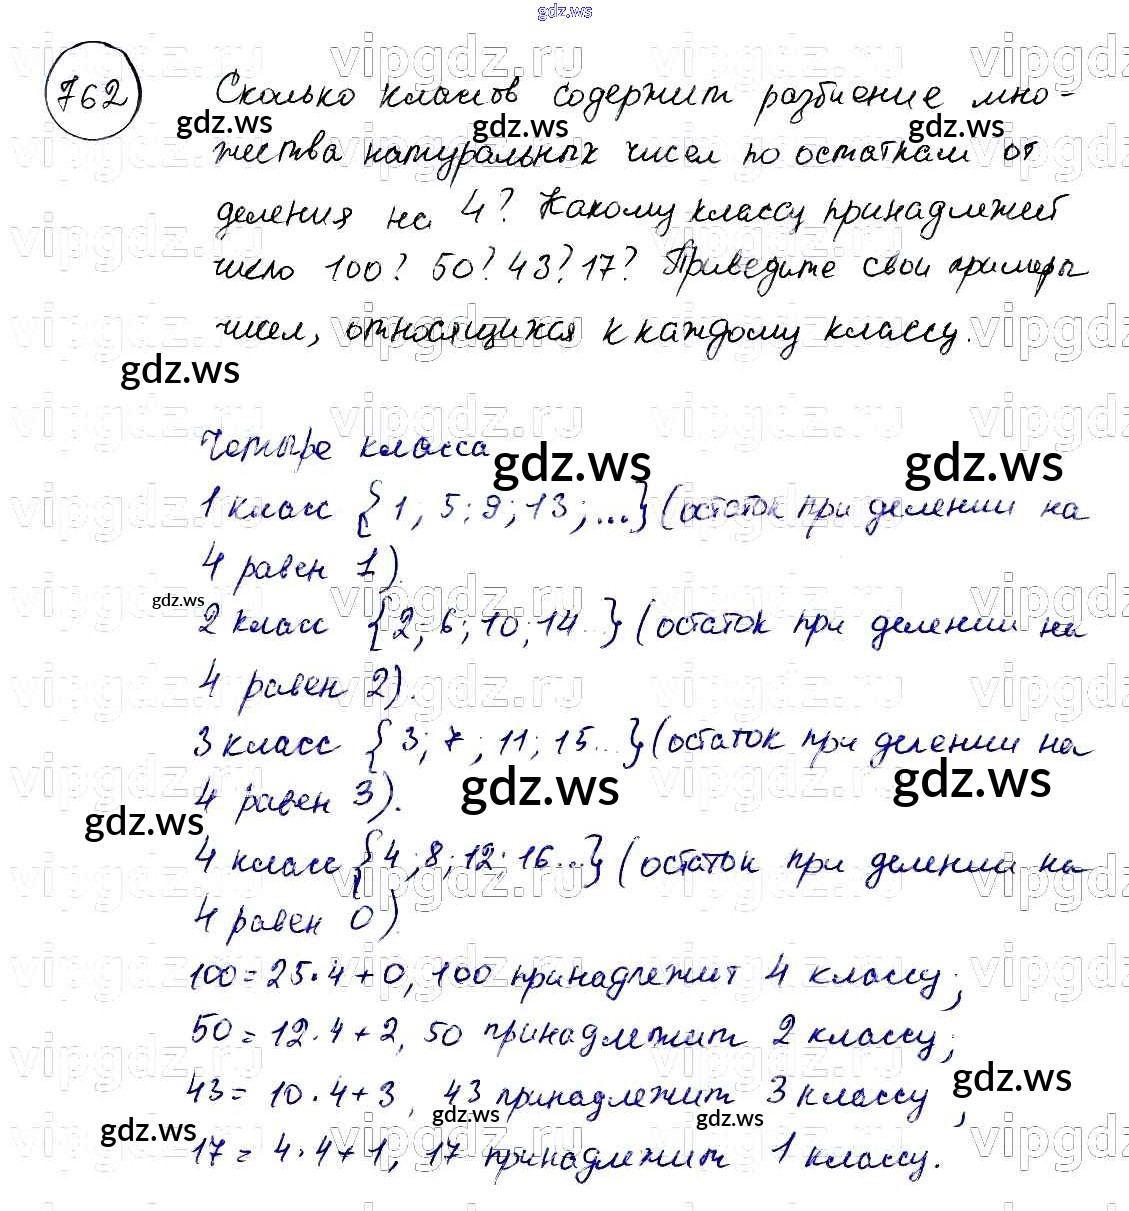 gdz.ws
762
Сколько классов содержит разбиение мно-
жества натуральных чисел по остаткам от
деления на 4? Какому классу принадлежит
число 100? 50? 43? 17? Приведите свои примеры
чисел, относящихся к каждому классу.
Четыре класса
1 класс {1; 5; 9; 13; ...} (остаток при делении на
4 равен 1).
2 класс {2; 6; 10; 14...} (остаток при делении на
4 равен 2).
3 класс {3; 7; 11; 15...} (остаток при делении на
4 равен 3).
4 класс {4; 8; 12; 16...} (остаток при делении на
4 равен 0).
100 = 25·4+0, 100 принадлежит 4 классу;
50 = 12·4+2, 50 принадлежит 2 классу;
43 = 10·4+3, 43 принадлежит 3 классу;
17 = 4·4+1, 17 принадлежит 1 классу.